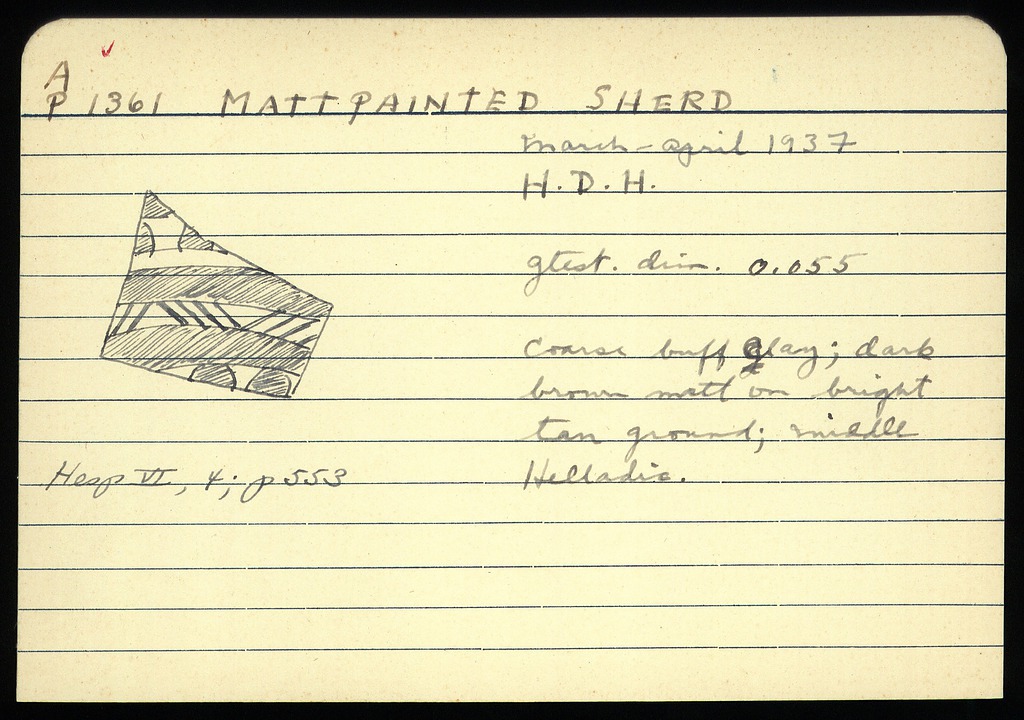 A
P 1361 MATTPAINTED SHERD
March - April 1937
H.D.H.
gtest. dim. 0.055
Coarse buff glay; dark
brown matt on bright
tan ground; middle
Helladic.
Hesp VI, 4; p 553